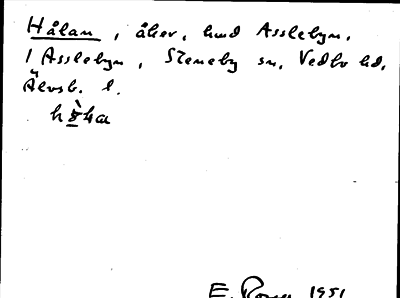 Hålan, åker, hmd Asslebyn.
1 Asslebyn, Steneby sn, Vedbo hd.
Älvsb. l.
E. 1951